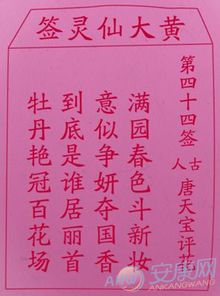 黄大仙灵签
第四十四签
古人 唐天宝评花
满园春色斗新妆
意似争妍夺国香
到底是谁居丽首
牡丹艳冠百花场
安康网